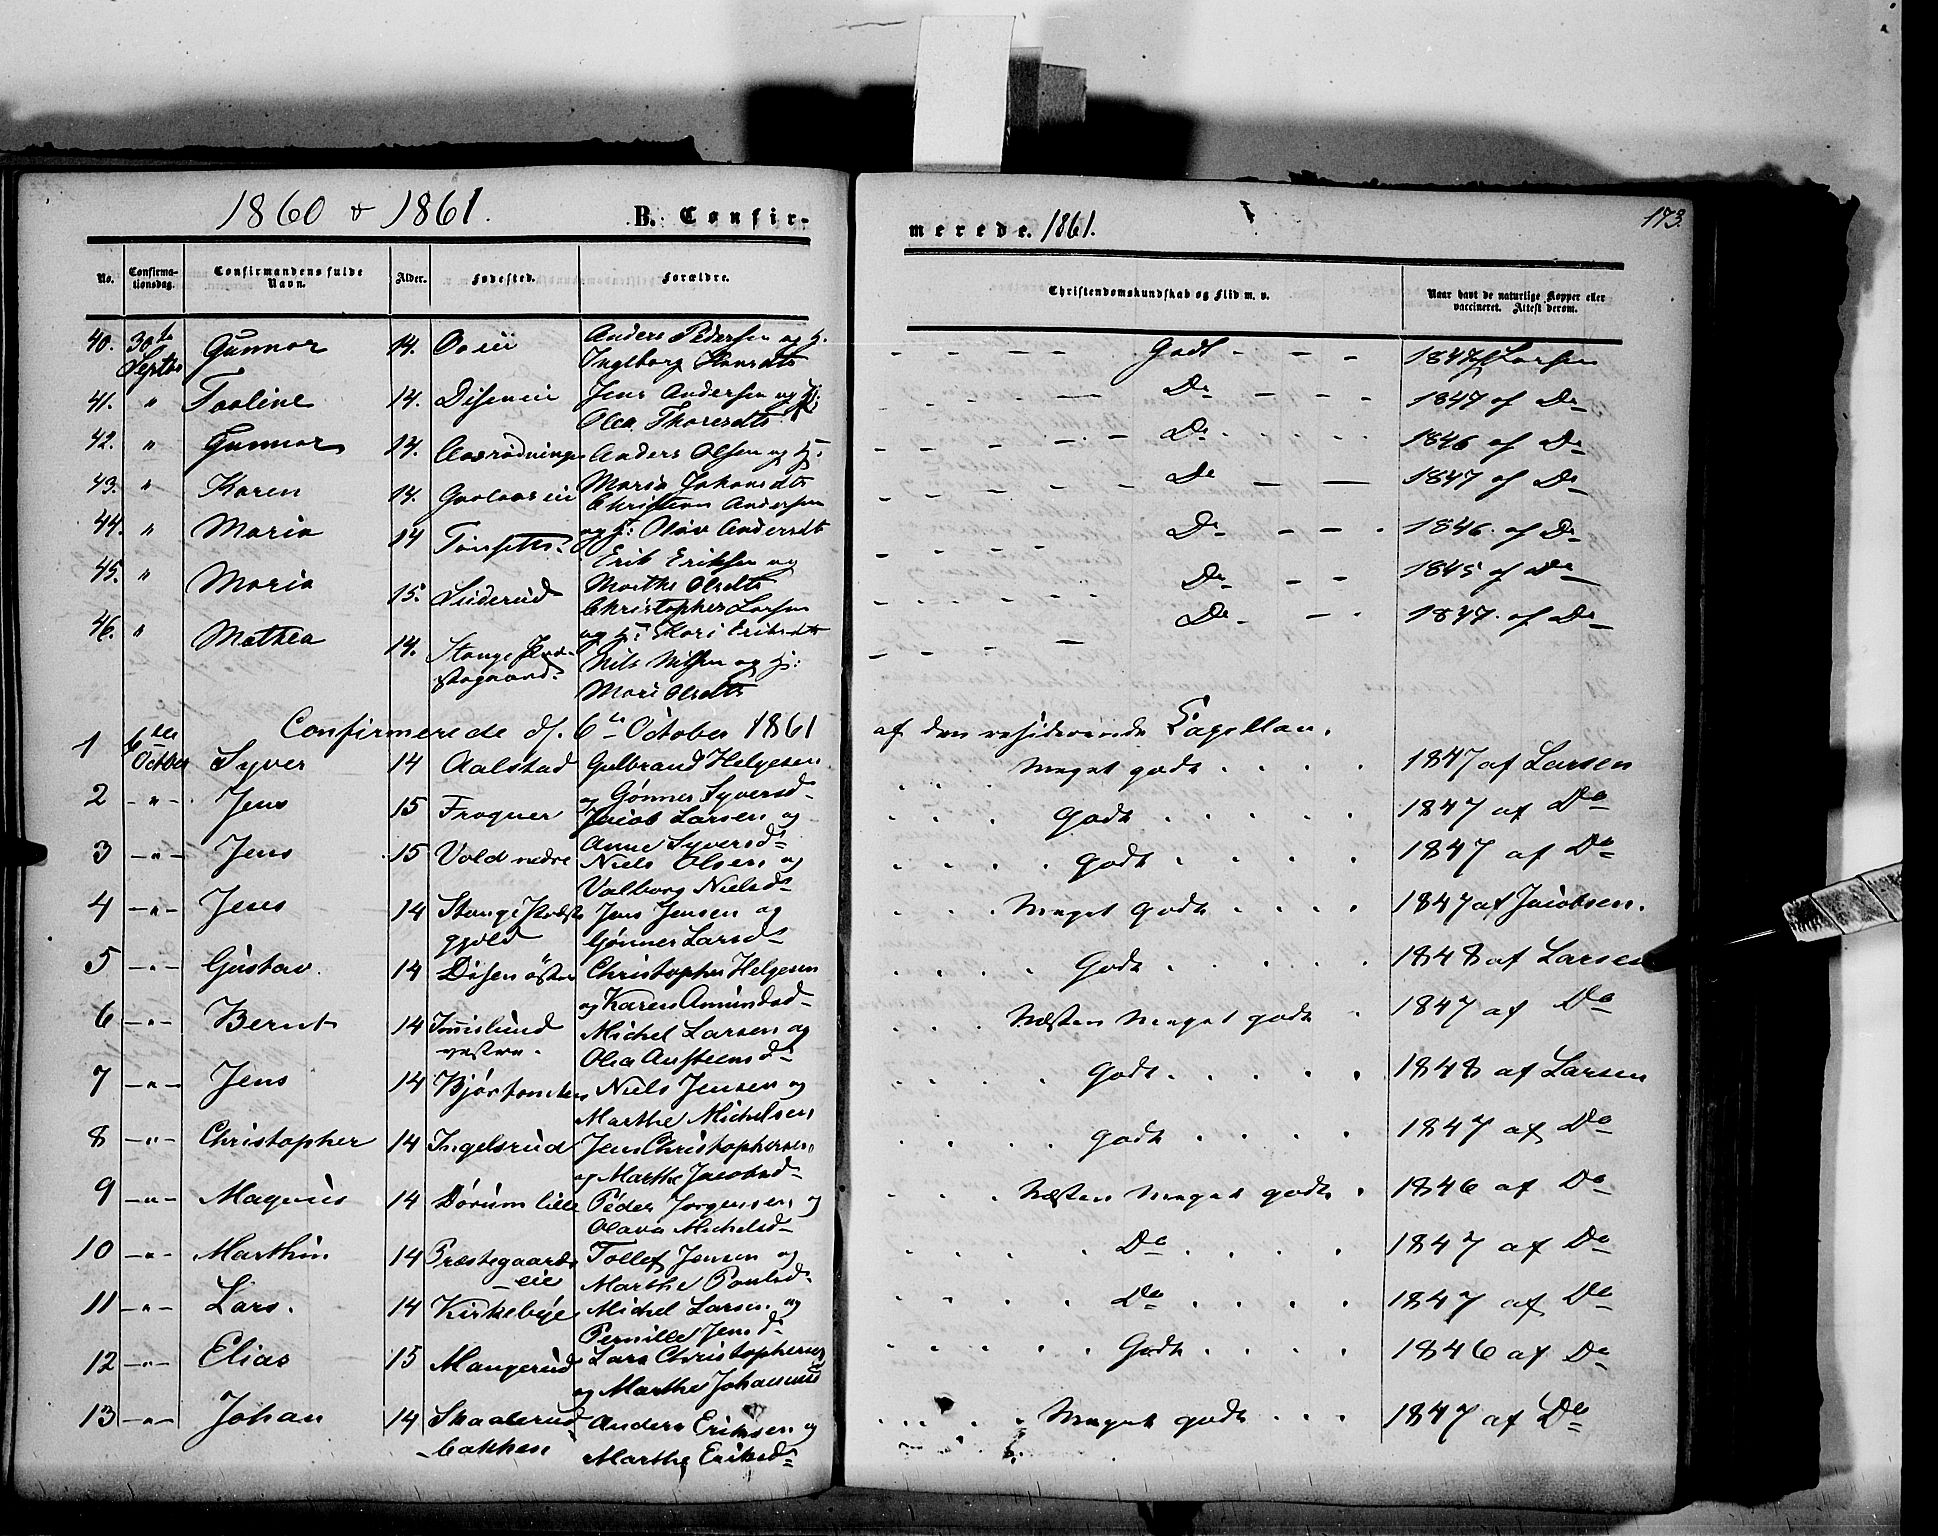 1860 & 1861.
B. Confir-
merede. 1861.
173.
No. Confirma-tionsdag. Confirmandens fulde Navn. Alder. Fødested. Forældre. Christendomskundskab og Flid m. v. Naar havt de naturlige Kopper eller vaccineret. Attest derom.
40. 30te Septbr Gunnor 14. Anders Pedersen og H: Godt 1847 Larsen
Ingeborg Hansdtr
41. " 14. Disen eie Jens Andersen og H: Do 1847 af Do
Olea Thoresdtr
42. " Gunnor 14. Anders Olsen og H: Do 1846 af Do
43. " Karen 14. Maria Johansdtr De 1847 af Do
Christian Andersen
44. " Maria 14 og H: Olav Andersdtr Do 1846 af Do
45. " Maria 15. Erik Eriksen og Do 1845 af Do
Marthe Olsdtr
46. " Mathea 14. Stange Præ- Christopher Larsen Do 1847 af Do
stegaard og H: Kari Eriksdtr
Nils Nilsen og H:
Mari Olsdtr
Confirmerede d. 6te October 1861 af den residerende Capellan.
1 6te October Syver 14 Aalstad Gulbrand Helgesen Meget godt 1847 af Larsen
og Gønner Syversd
2 -"- Jens 15 Frogner Jacob Larsen og Godt 1847 af Do
Anne Syversd
3 -"- Jens 15 Vold nedre Niels Olsen og Godt 1847 af Do
Valborg Nielsd
4 -"- Jens 14 Stange Præste Jens Jensen og Meget Godt 1847 af Jacobsen.
gjeld Gönner Larsd
5 -"- Gustav. 14 Disen östre Christopher Helgesen Godt 1848 af Larsen
og Karen Amundsd
6 -"- Bernt 14 Imislund Michel Larsen og Næsten Meget godt 1847 af Do
vestre. Olea Austeensd
7 -"- Jens 14 Niels Jensen og Godt 1848 af Larsen
Marthe Michelsen
8 -"- Christopher 14 Ingelsrud Jens Christophersen Godt 1847 af Do
og Marthe Jacobsd
9 -"- Magnus 14 Dörum lille Peder Jörgensen og Næsten Meget godt 1846 af Do
Olava Michelsd
10 -"- Marthin 14 Præstegaards Tollef Jensen og Do 1847 af Do
-eie Marthe Paulsd
11 -"- Lars. 14 Kirkebye Michel Larsen og Do 1847 af Do
Pernille Jensd
12 -"- Elias 15 Mangerud Lars Christophersen Godt 1846 af Do
og Marthe Johannesd
13 -"- Johan 14 Skaalerud Anders Eriksen og Meget godt 1847 af Do
-bakken Marthe Eriksd